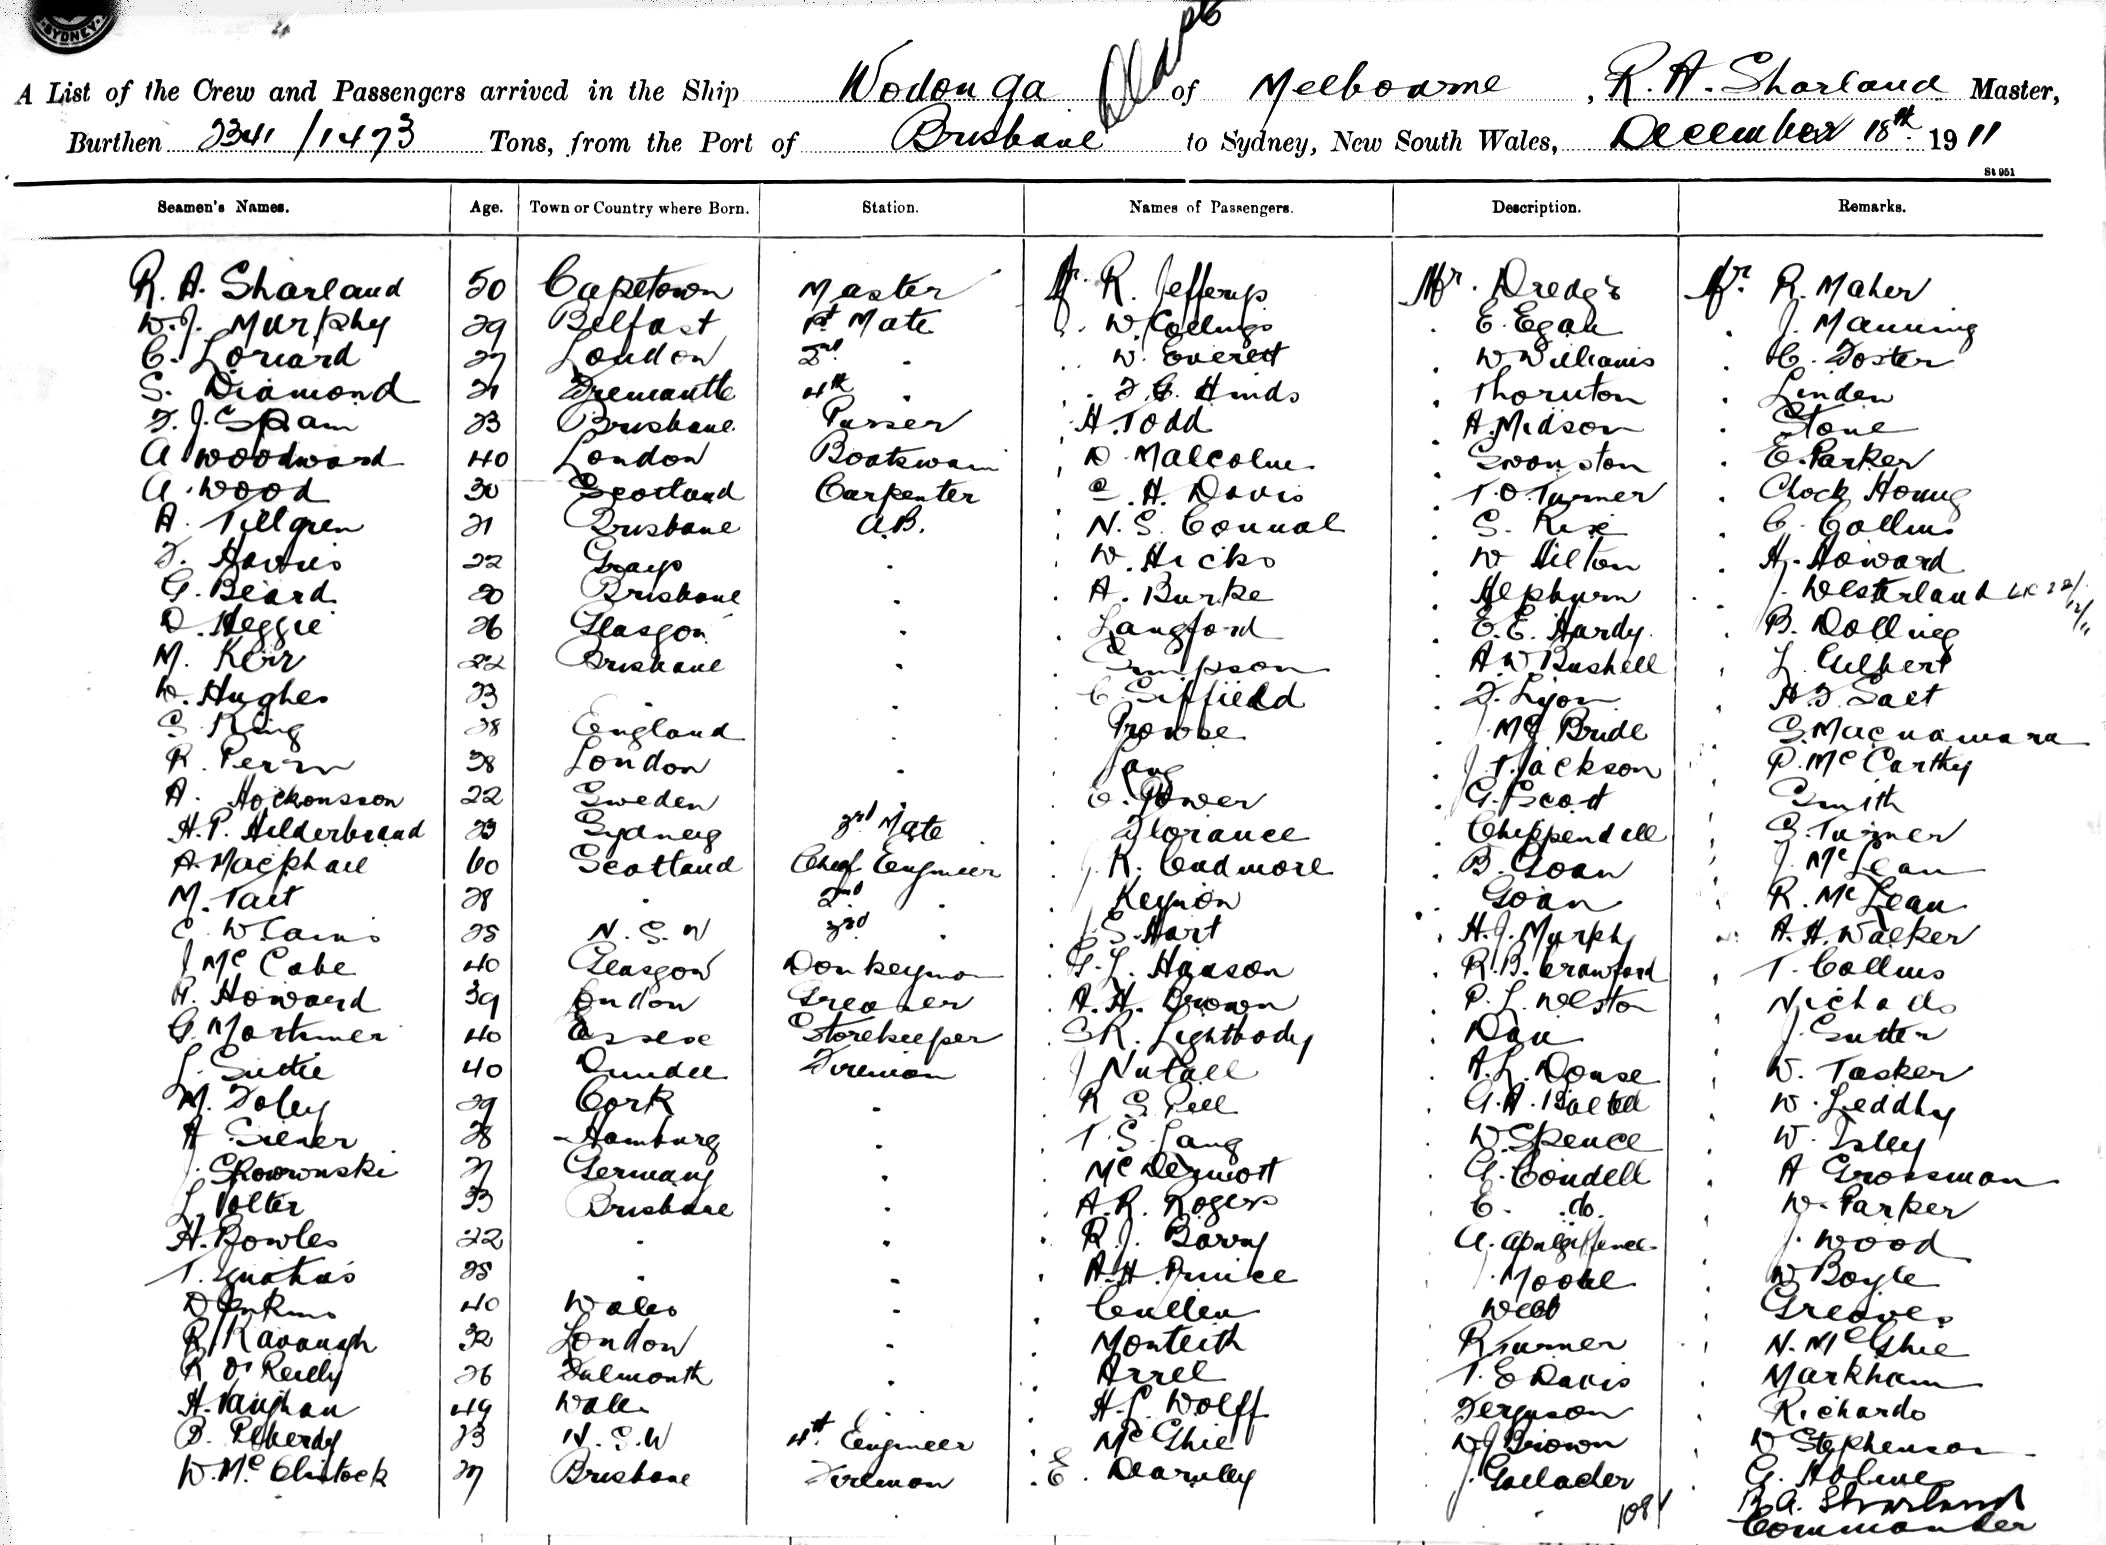 SYDNEY
A List of the Crew and Passengers arrived in the Ship Wodonga of Melbourne, R. A. Sharland Master,
Burthen 2341/1473 Tons, from the Port of Brisbane to Sydney, New South Wales, December 18th 1911
St 951
Seamen's Names. Age. Town or Country where Born. Station. Names of Passengers. Description. Remarks.
R. A. Sharland 50 Capetown Master Mr. R. Mr. Mr. R. Maher
W. J. Murphy 29 Belfast 1st Mate W. Collings E. Egan J. Manning
C. Loriard 27 London 2nd " W. Everett W Williams C. Foster
S. Diamond 21 Fremantle 4th " F. G. Hinds Thornton Linden
F. J. Spain 23 Brisbane Purser H. Todd A. Midson Stone
A Woodward 40 London Boatswain D. Malcolm Swanston E. Parker
A. Wood 30 Scotland Carpenter C. H. Davis T. O. Turner Chock Houng
A. Tillgren 21 Brisbane A.B. N. S. Connal S. Rix C. Collins
F. Harris 22 Grays " W. Hicks W Hilton H. Howard
G. Beard 20 Brisbane " A. Burke Hepburn J. Westerland
D. Heggie 26 Glasgow " Langford E. E. Hardy B. Dolling
M. Kerr 22 Brisbane " Simpson A W Bushell L. Culbert
W. Hughes 23 " " C. Siffield F. Lyon H F Salt
S. King 28 England " Prowse Mc Bride S. Macnamara
R. Perrin 38 London " Lang J. T. Jackson P. McCarthy
A. Hockonsson 22 Sweden " C. Power G. Scott Smith
H. P. Hilderbrand 23 Sydney 3rd Mate Florance Chippendall S. Turner
A. Macphail 60 Scotland Chief Engineer R. Cudmore B. Goan J. McLean
M. Tait 28 " 2nd " Kenyon Goan R. McLean
C. W. Cains 25 N. S. W 3rd " S. Hart H. J. Murphy A. H. Walker
J McCabe 40 Glasgow Donkeyman G. L. Hanson R. B. Crawford T. Collins
R. Howard 39 London Greaser A. H. Brown P. L. Welston Nicholls
G. Mortimer 40 Essex Storekeeper S R. Lightbody Dan J. Sutter
L. Suttie 40 Dundee Fireman J Nutall A. L. Douse W. Tasker
M. Foley 29 Cork " R S. Pell G. A. W. Leddhy
A Siener 28 Hamburg " T. S. Lang W. Spence W. Isley
J. Skowronski 27 Germany " McDermott G. Condell A Grossman
L. Volter 33 Brisbane " A. R. Rogers E. do. W. Parker
H. Bowles 22 " " R. J. A. J. Wood
T. Ignatius 25 " " A. H. Prince Moore W Boyle
D Jenkins 40 Wales " Cullen Webb Greaves
R Kavanagh 32 London " Monteith R Turner N. McGhie
R O'Reilly 26 Falmouth " Arrel T. E Davis Markham
H. Vaughan 49 Wales " H. L. Wolff Ferguson Richards
B. Peberdy 23 N. S. W 4th Engineer McGhie W J Brown W Stephenson
W. McClintock 27 Brisbane Fireman E. Dearnley J. Gallacher G. Holmes
108
R. A. Sharland
Commander